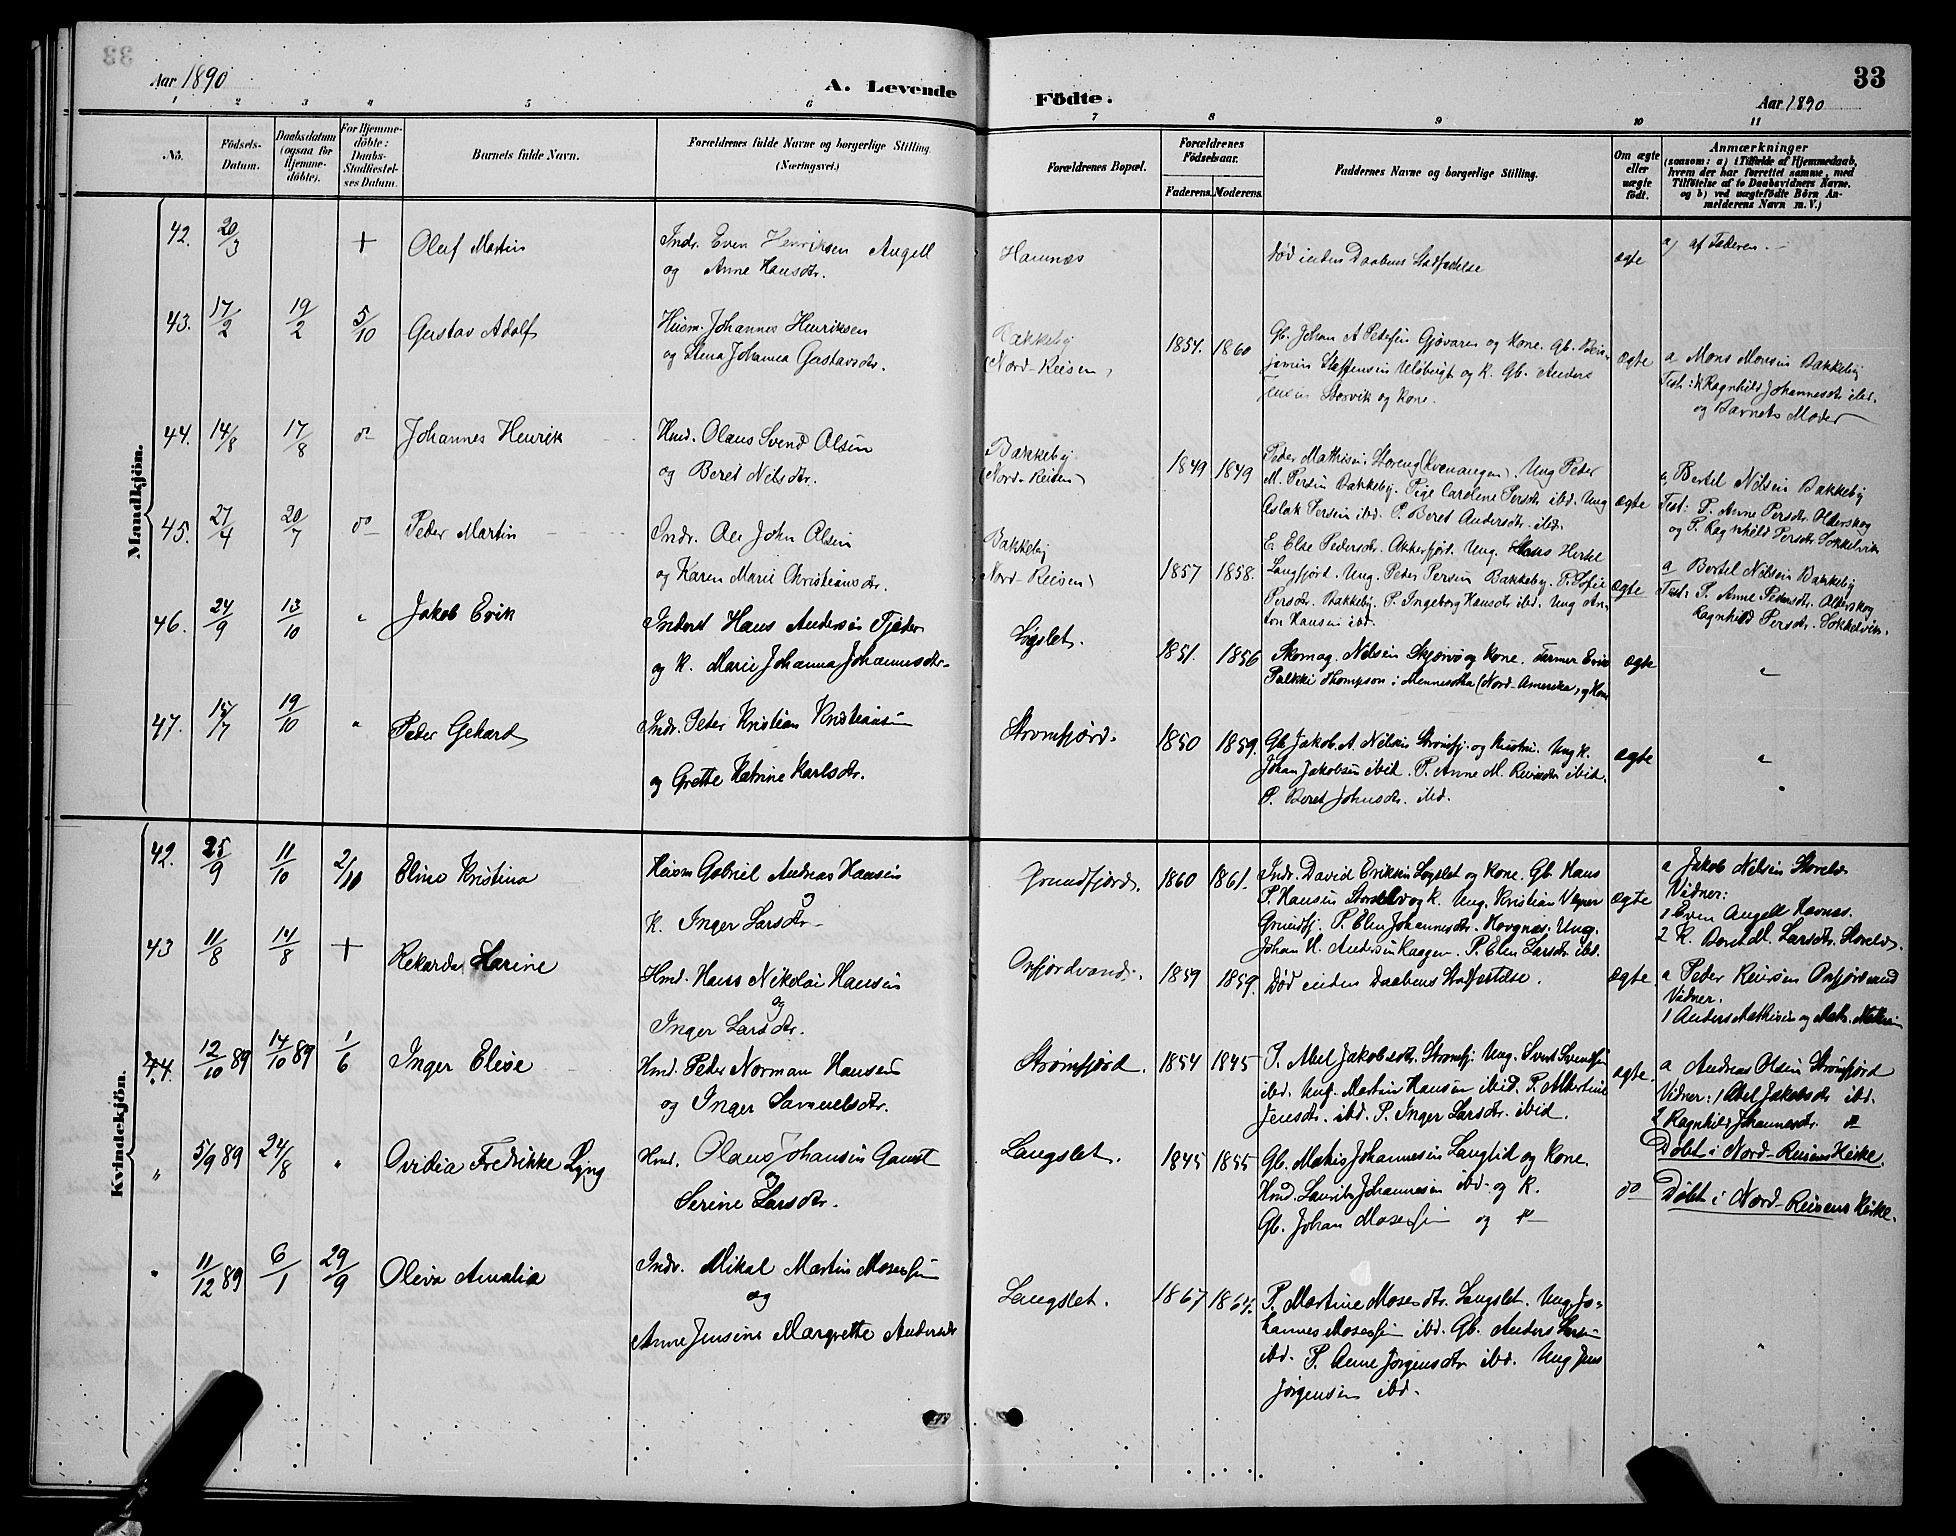 33
Aar 1890
A. Levende
Födte.
33
Aar 1890
1 2 3 4 5 6 7 8 9 10 11
No.
Födsels-
Datum.
Daabsdatum
(ogsaa for
Hjemme-
döbte).
For Hjemme-
döbte:
Daabs-
Stadfæstel-
ses Datum.
Barnets fulde Navn.
Forældrenes fulde Navne og borgerlige Stilling
(Næringsvei.)
Forældrenes Bopæl.
Forældrenes
Födselsaar.
Faderens. Moderens.
Faddernes Navne og borgerlige Stilling.
Om ægte
eller
uægte
födt.
Anmærkninger
(saasom: a) i Tilfælde af Hjemmedaab,
hvem der har forrettet samme, med
Tilföielse af to Daabsvidners Navne.
og b) ved uægtefödte Börn An-
melderens Navn m. V.)
Mandkjön.
42. 20/3 + Oluf Martin
Indr. Even Henriksen Angell
og Anne Hansdtr.
Havnnæs
Død inden Daabens Stadfæstelse
ægte
a) af Faderen.
43. 17/2 19/2 5/10 Gustav Adolf
Husm. Johannes Henriksen
og Stena Johanna Gustavsdtr.
Bakkeby
(Nord-Reisen)
1854. 1860
Gb. Johan A Petersen Gjøvaren og Kone. Gb. Ben-
jamin Steffensen og K. Gb. Anders
Jensen Storvik og Kone.
ægte
a Mons Monsen Bakkeby
Test: K Ragnhild Johannesdtr ibd.
og Barnets Moder
44. 14/8 17/8 do Johannes Henrik
Hmd. Olaus Svend Olsen
og Beret Nilsdtr.
Bakkeby
(Nord-Reisen)
1849 1849
Peder Mathisen Storeng (Kvænangen). Ung Peder
M. Persen Bakkeby. Pige Carolene Persdtr ibd. Ung
Aslak Persen ibd. P. Beret Andersdtr. ibd.
ægte
a. Bertel Nilsen Bakkeby
Test: P. Anne Persdtr. Olderskog
og P. Ragnhild Persdtr. Sokkelvik
45. 27/4 20/7 do Peder Martin
Indr. Ole John Olsen
og Karen Marie Christiansdtr.
Bakkeby
Nord-Reisen)
1857 1858.
E. Else Pedersdtr. Akkarfjord. Ung. Hertel
Langfjord. Ung. Peder Persen Bakkeby. P. Sofie
Persdtr. Bakkeby. P. Ingeborg Hansdtr ibd. Ung An-
ton Hansen ibd.
ægte
a Bertel Nilsen Bakkeby
Test: P. Anne Pedersdtr. Olderskog
Ragnhild Persdtr. Sokkelvik.
46. 24/9 13/10 " Jakob Erik
Inderst Hans Andersen Fjeder
og K. Marie Johanna Johannesdtr.
Løgslet.
1851. 1856
Skomag. Nilsen Skjærvø og Kone. Farmer Erik
Pulkki Thompson i Mennesotha (Nord-Amerika) og Kone
ægte
"
47. 15/7 19/10 " Peder Gehard
Indr. Peter Kristian Kristiansen
og Grethe Katrine Karlsdtr.
Strømfjord.
1850 1859.
Gb. Jakob A. Nilsen Strømfj. og Hustru. Ung K.
Johan Jakobsen ibid. P. Anne M. Reiersdtr ibid.
P. Beret Johnsdtr. ibd.
ægte
"
Kvindekjön.
42. 25/9 11/10 2/10 Eline Kristina
Husm Gabriel Andreas Hansen
og
K. Inger Larsdtr.
Grundfjord.
1860 1861.
Indr. David Eriksen Løgslet og Kone. Gb. Hans
P. Hansen Storelv og K. Ung. Kristian Vesper
Grundfj. P. Elen Johannesdtr. Hovgnæs. Ung.
Johan H. Andersen Kaagen. P. Elen Larsdtr ibd.
ægte
a Jakob Nilsen Storelv
Vidner:
1 Even Angell Havnæs.
2 K. Doret M. Larsdtr. Storelv.
43 11/8 14/8 + Rekarda Harine
Hmd. Hans Nikolai Hansen
og
Inger Larsdtr.
Oxfjordvand.
1859 1859.
Død inden Daabens Stadfæstelse.
ægte.
a Peder Reiersen Oxfjordvand
Vidner.
1 Anders Mathisen og
44. 12/10 89 14/10 89 1/6 Inger Elise
Hmd. Peder Norman Hansen
og Inger Samuelsdtr.
Strømfjord.
1854 1845
P. Abel Jakobsdtr. Strømfj. Ung. Svend Svendsen
ibd. Ung. Martin Hansen ibid. P. Albertine
Jensdtr. ibd. P. Inger Larsdtr. ibid.
ægte.
a Andreas Olsen Strømfjord
Vidner: 1 Abel Jakobsdtr ibd.
2 Ragnhild Johannesdtr. do
Døbt i Nord-Reisens Kirke.
" 5/9 89 24/8 " Ovidia Fredrikke Lyng
Hmd. Olaus Johansen Garnst
og
Serine Larsdtr.
Langslet.
1845 1855
Gb. Mathis Johannesen Langlid og Kone.
Hmd. Laurits Johannesen ibd. og K.
Gb. Johan Mosessen og do
do
Døbt i Nord-Reisens Kirke.
" 11/12 89 6/1 29/9 Oliva Amalia
Indr. Mikal Martin Mosessen
og
Anne Jensine Margrethe Andersdtr
Langslet.
1867 1864.
P. Martine Mosesdtr. Langslet. Ung. Jo-
hannes Mosessen ibd. Gb. Anders Larsen
ibd. P. Anne Jørgensdtr ibd. Ung Jens
Jørgensen ibd.
"